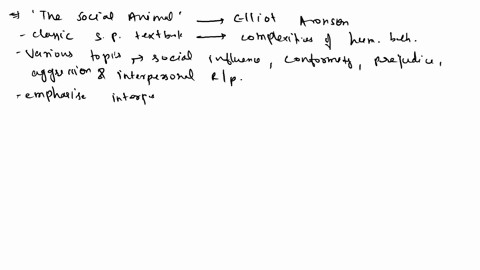 ⇒ 'The Social Animal' → Elliot Aronson
- classic s.p. textbook → complexities of hum. beh.
- Various topics → social influence, conformity, prejudice,
aggression & interpersonal R/p.
- emphasise interpe